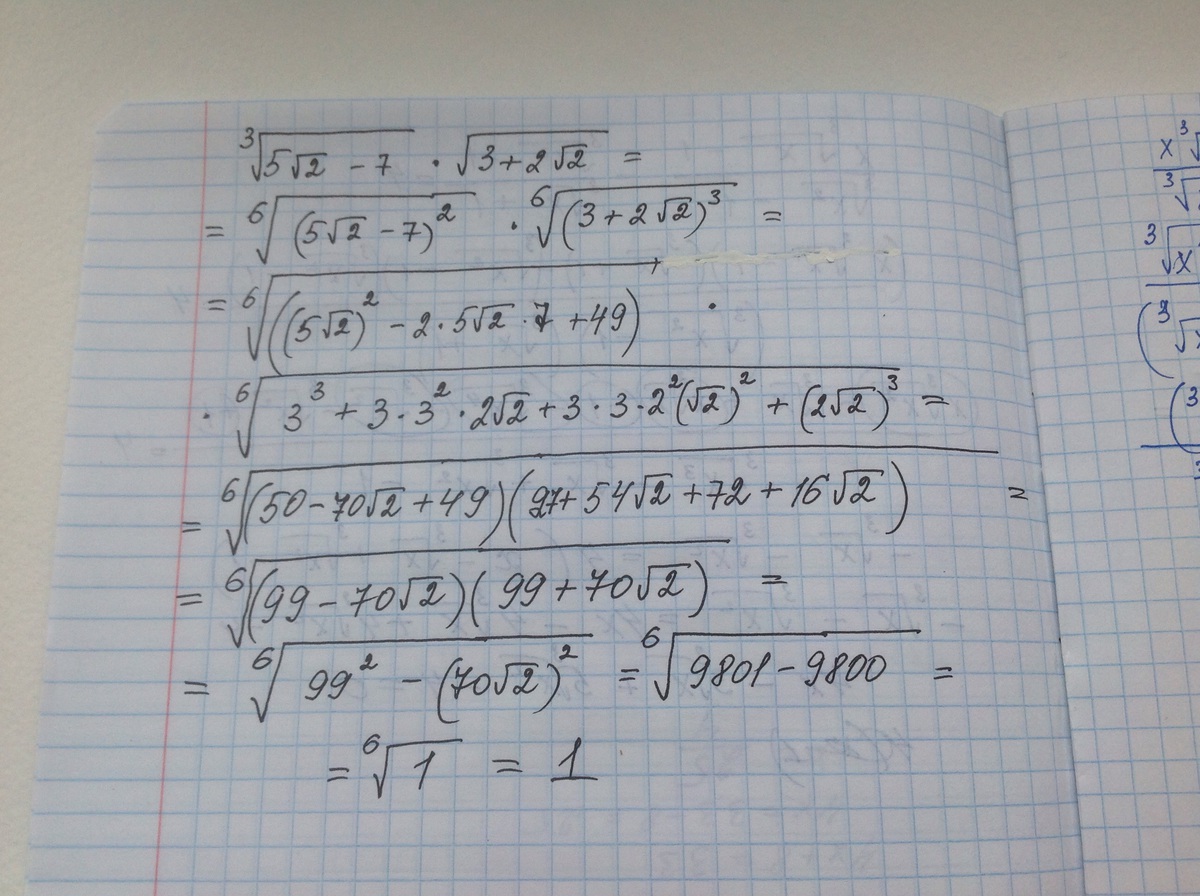 ∛(5√2 − 7) · √(3 + 2√2) =
= ⁶√((5√2 − 7)²) · ⁶√((3 + 2√2)³) =
= ⁶√((5√2)² − 2 · 5√2 · 7 + 49) ·
· ⁶√(3³ + 3 · 3² · 2√2 + 3 · 3 · 2²(√2)² + (2√2)³) =
= ⁶√((50 − 70√2 + 49)(27 + 54√2 + 72 + 16√2)) =
= ⁶√((99 − 70√2)(99 + 70√2)) =
= ⁶√(99² − (70√2)²) = ⁶√(9801 − 9800) =
= ⁶√1 = 1